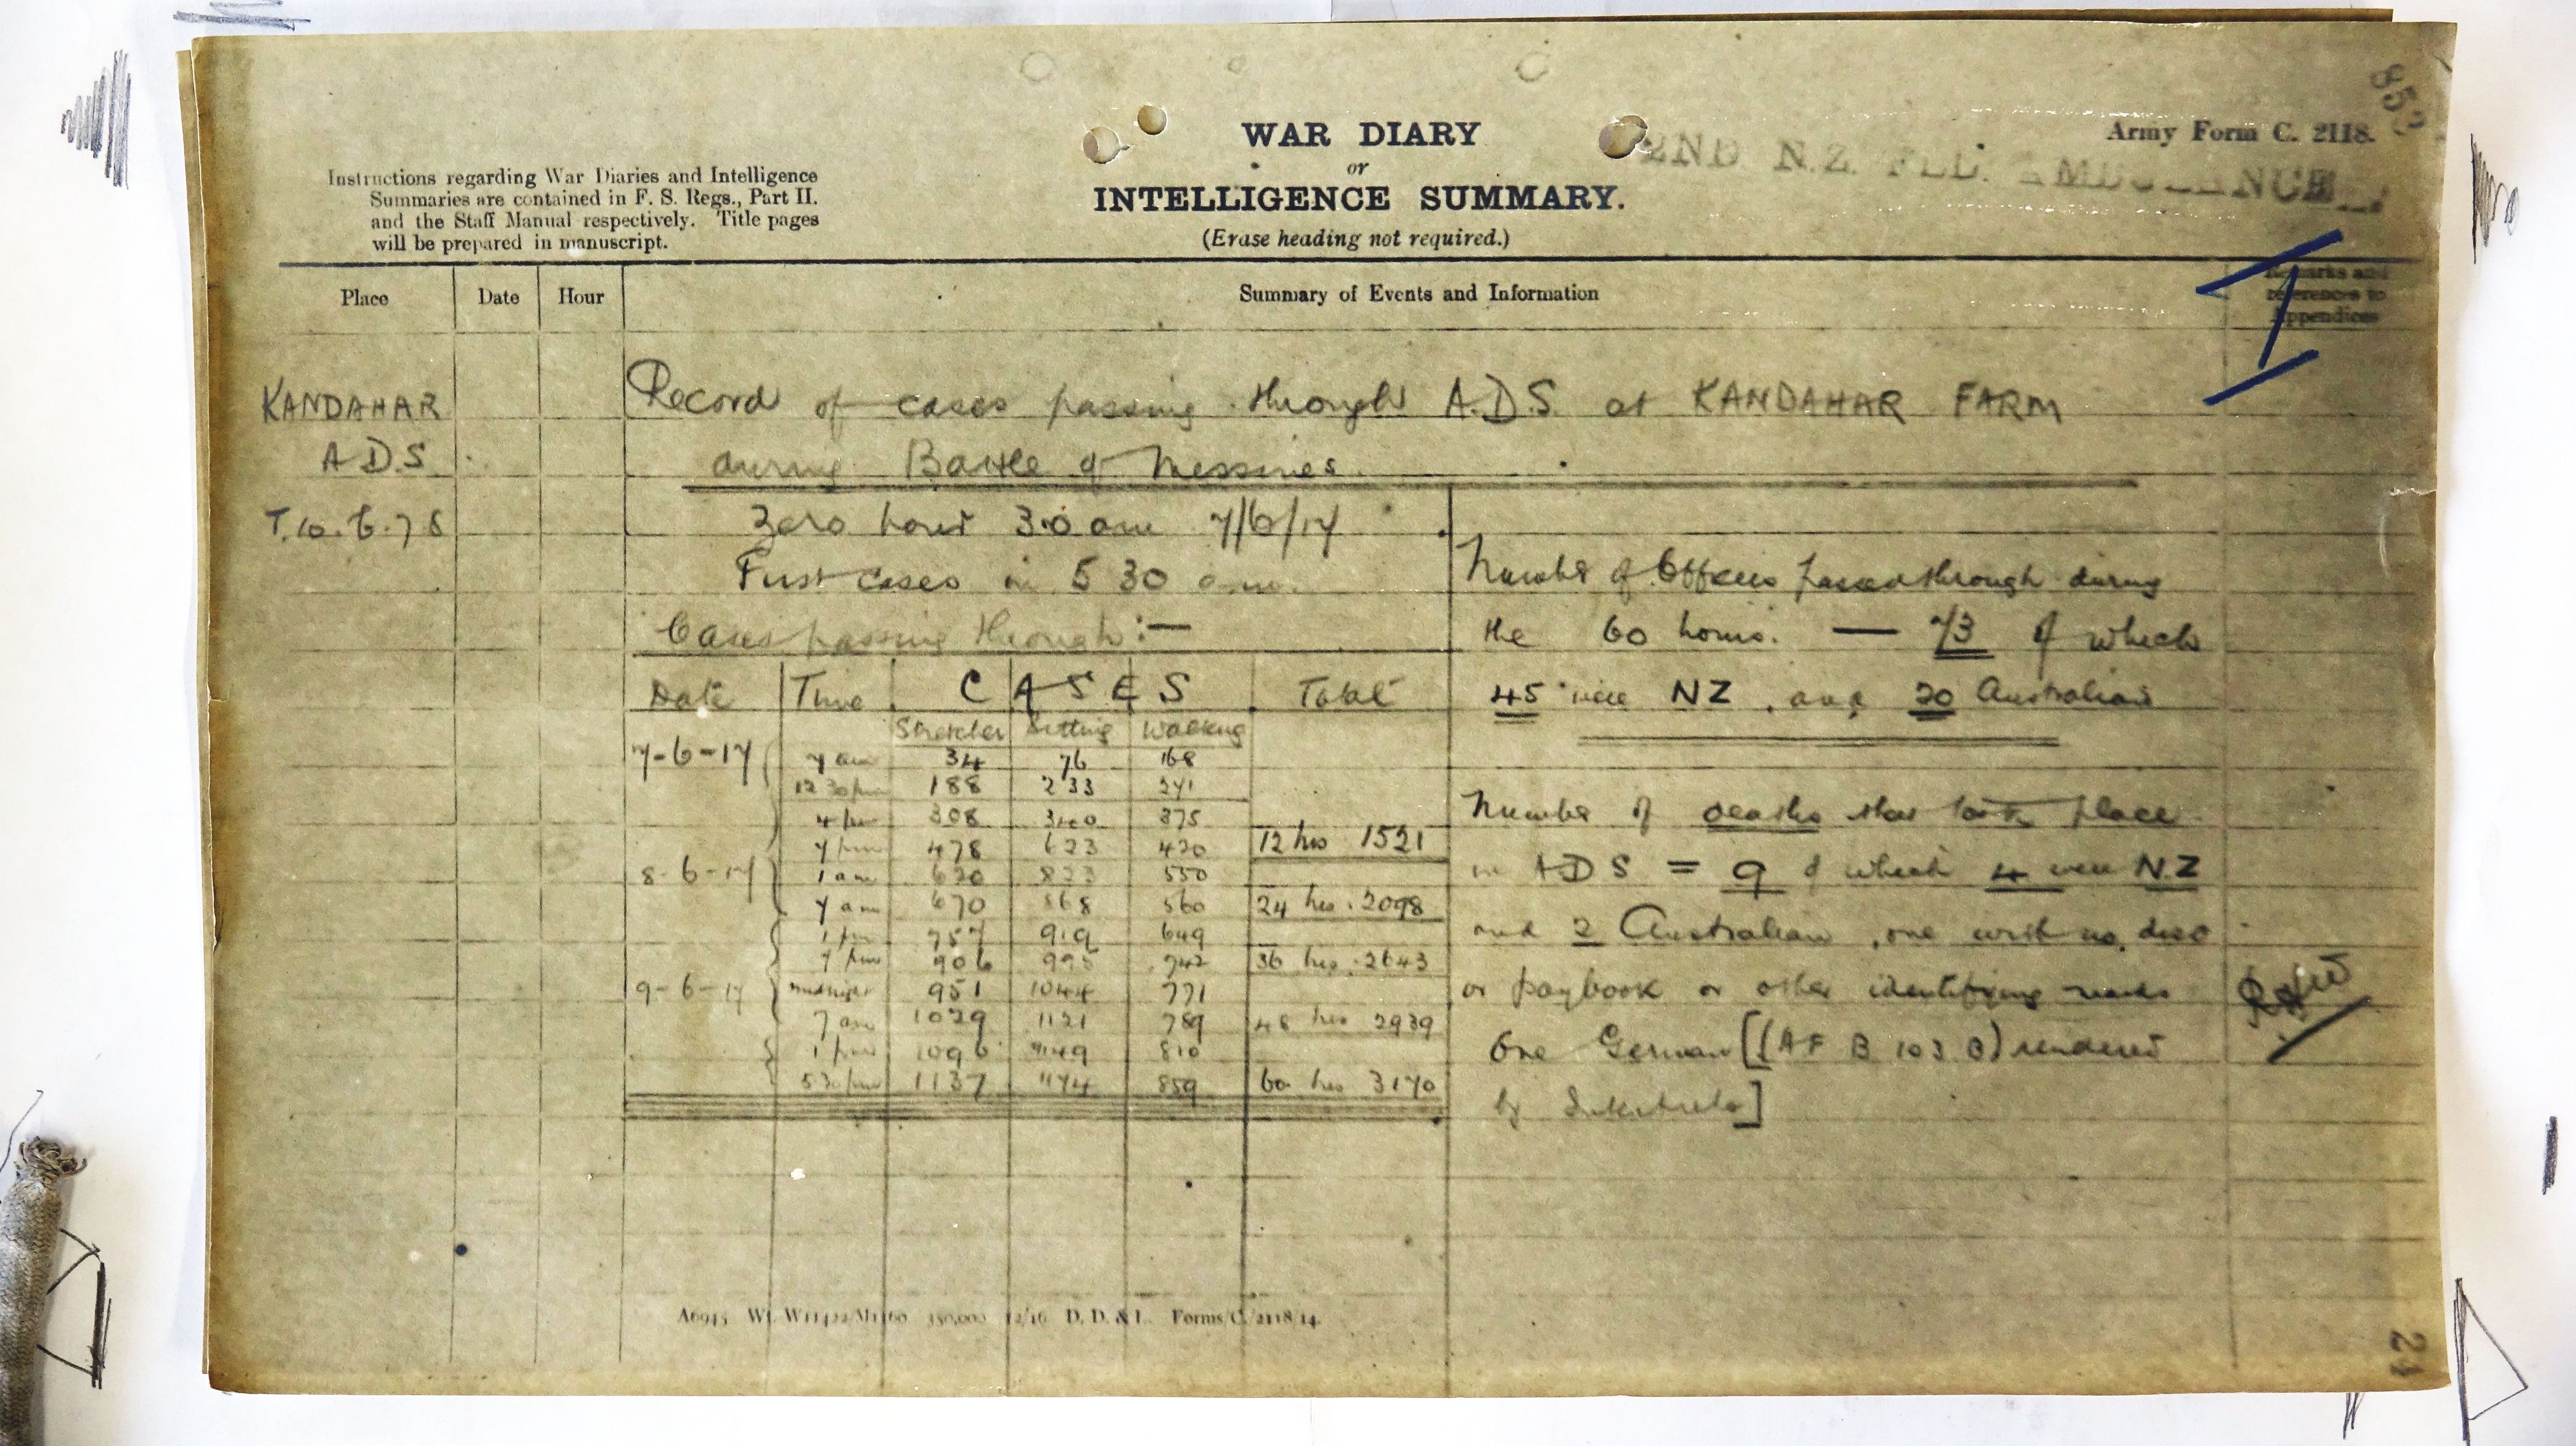 853
Army Form C. 2118.
2ND N.Z. FLD. AMBULANCE
WAR DIARY
or
INTELLIGENCE SUMMARY.
(Erase heading not required.)
Instructions regarding War Diaries and Intelligence
Summaries are contained in F. S. Regs., Part II.
and the Staff Manual respectively. Title pages
will be prepared in manuscript.
I
Place Date Hour Summary of Events and Information
Remarks and
references to
Appendices
KANDAHAR
A.D.S.
T.10.b.7.8
Record of cases passing through A.D.S. at KANDAHAR FARM
during Battle of Messines.
Zero hour 3.0 am 7/6/17
First cases in 5 30 am.
Cases passing through :—
Date Time CASES Total
Stretcher Sitting Walking
7-6-17 7 am 34 76 168
12 30 pm 188 233 241
4 pm 308 340 375
7 pm 478 623 420 12 hrs 1521
8-6-17 1 am 620 823 550
7 am 670 868 560 24 hrs. 2098
1 pm 757 919 649
7 pm 906 995 742 36 hrs. 2643
9-6-17 midnight 951 1044 771
7 am 1029 1121 789 48 hrs 2939
1 pm 1096 1149 810
5 30 pm 1137 1174 859 60 hrs 3170
Number of Officers passed through during
the 60 hours. — 73 of which
45 were NZ. and 20 Australian
Number of deaths that took place
in ADS = 9 of which 4 were N.Z
and 2 Australian, one with no disc
or paybook or other identifying marks
One German [(AF B 103 B) rendered
by
A6945 Wt. W11422/M1160 350,000 12/16 D. D. & L. Forms/C./2118/14.
21